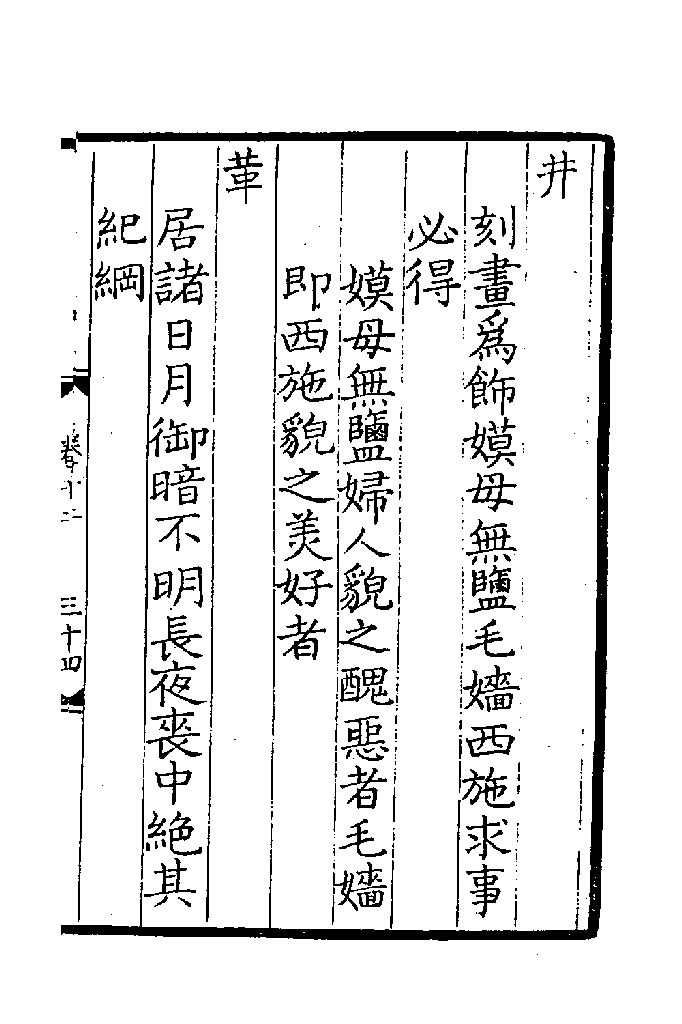 井
刻畫爲飾嫫母無鹽毛嬙西施求事
必得
嫫母無鹽婦人貌之醜惡者毛嬙
即西施貌之美好者
革
居諸日月御暗不明長夜喪中絶其
紀綱
卷十二
三十四